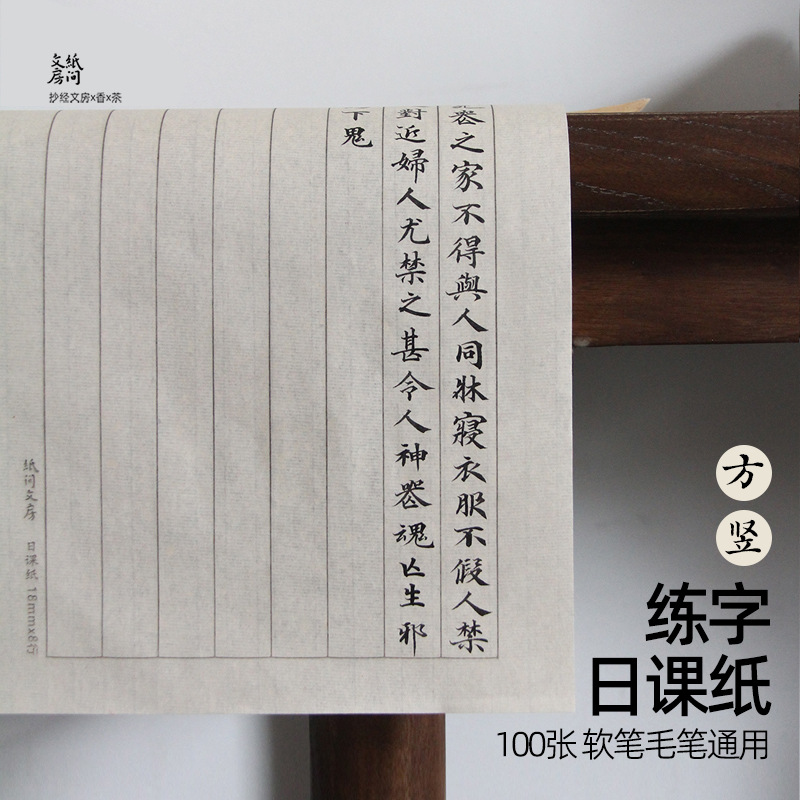 紙问
文房
抄经文房x香x茶
喪之家不得與人同牀寢衣服不假人禁
對近婦人尤禁之甚令人神喪魂亡生邪
下鬼
紙问文房 日课纸 18mmx8行
方
竖
练字
日课纸
100张 软笔毛笔通用